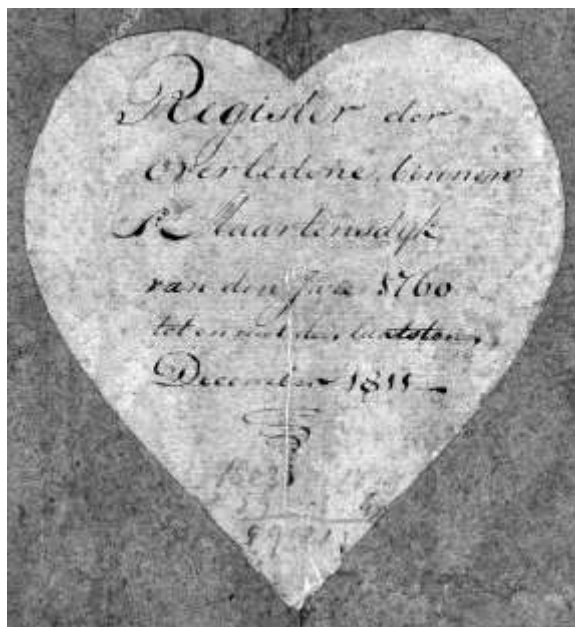 Register der
overledene, binnen
St Maartensdyk
van den Jare 1760
tot en met den laatsten
December 1811